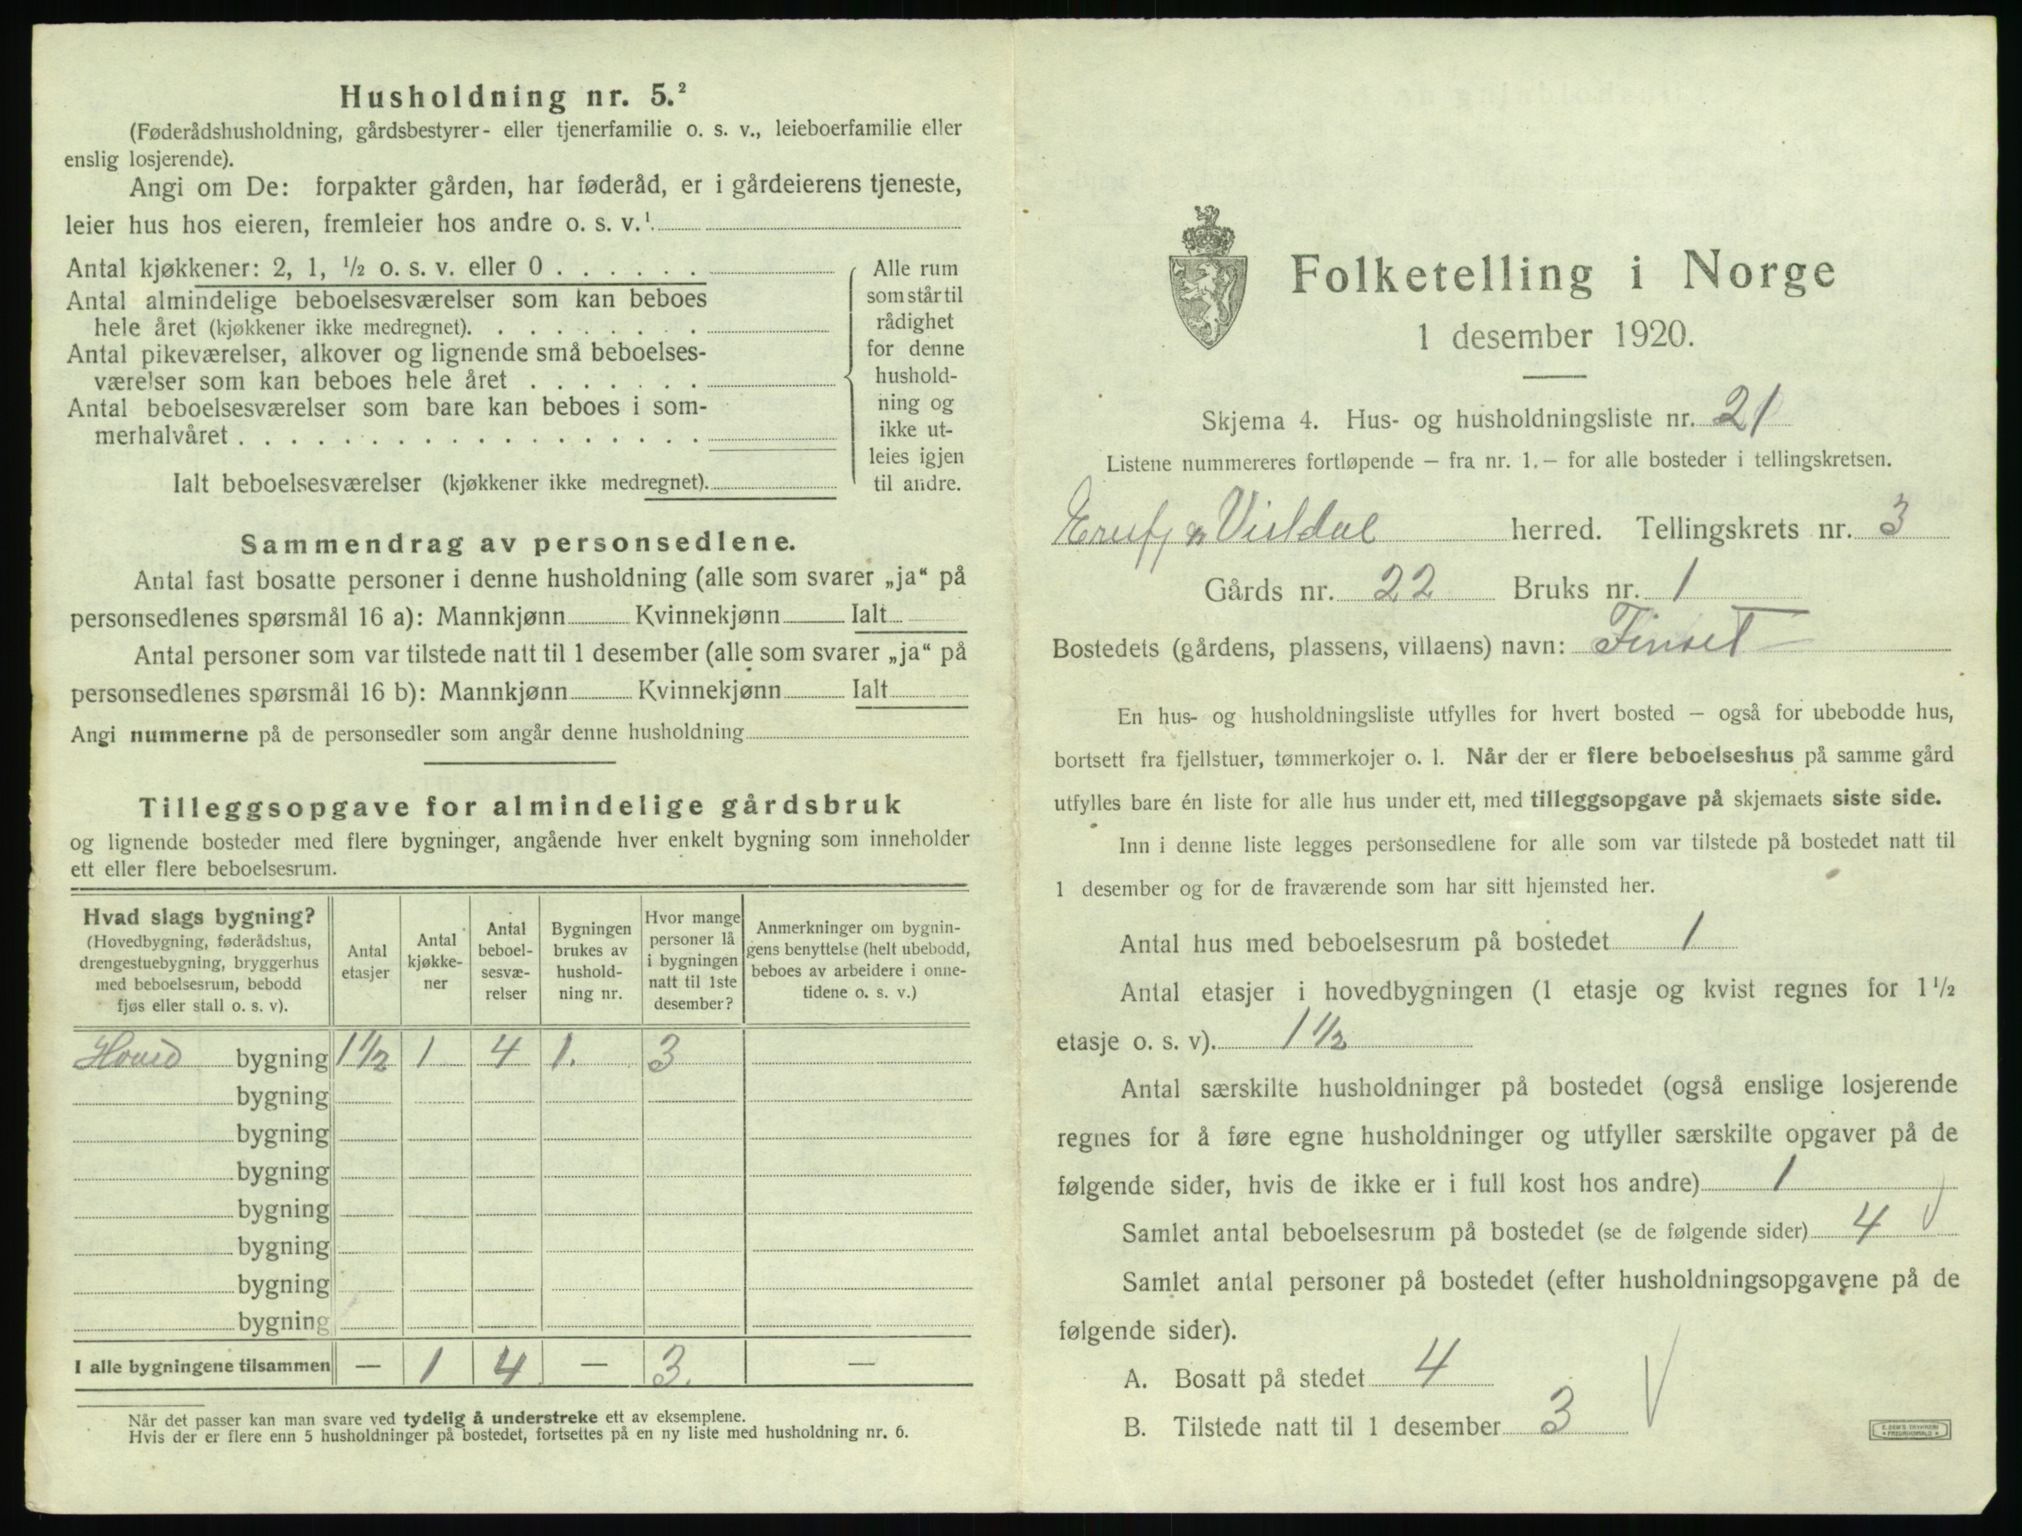 Husholdning nr. 5.²
(Føderådshusholdning, gårdsbestyrer- eller tjenerfamilie o. s. v., leieboerfamilie eller
enslig losjerende).
Angi om De: forpakter gården, har føderåd, er i gårdeierens tjeneste,
leier hus hos eieren, fremleier hos andre o. s. v.¹
Antal kjøkkener: 2, 1, ½ o. s. v. eller 0 . . . . . .
Antal almindelige beboelsesværelser som kan beboes
hele året (kjøkkener ikke medregnet). . . . . . . . .
Antal pikeværelser, alkover og lignende små beboelses-
værelser som kan beboes hele året . . . . . . .
Antal beboelsesværelser som bare kan beboes i som-
merhalvåret . . . . . . . . . . . . . . . . . .
Ialt beboelsesværelser (kjøkkener ikke medregnet).
Alle rum
som står til
rådighet
for denne
hushold-
ning og
ikke ut-
leies igjen
til andre.
Sammendrag av personsedlene.
Antal fast bosatte personer i denne husholdning (alle som svarer „ja“ på
personsedlenes spørsmål 16 a): Mannkjønn Kvinnekjønn Ialt
Antal personer som var tilstede natt til 1 desember (alle som svarer „ja“ på
personsedlenes spørsmål 16 b): Mannkjønn Kvinnekjønn Ialt
Angi nummerne på de personsedler som angår denne husholdning
Tilleggsopgave for almindelige gårdsbruk
og lignende bosteder med flere bygninger, angående hver enkelt bygning som inneholder
ett eller flere beboelsesrum.
Hvad slags bygning?
(Hovedbygning, føderådshus,
drengestuebygning, bryggerhus
med beboelsesrum, bebodd
fjøs eller stall o. s. v).
Antal
etasjer
Antal
kjøkke-
ner
Antal
beboel-
sesvæ-
relser
Bygningen
brukes av
hushold-
ning nr.
Hvor mange
personer lå
i bygningen
natt til 1ste
desember?
Anmerkninger om bygnin-
gens benyttelse (helt ubebodd,
beboes av arbeidere i onne-
tidene o. s. v.)
Hoved bygning 1½ 1 4 1. 3
bygning
bygning
bygning
bygning
bygning
bygning
bygning
I alle bygningene tilsammen — 1 4 — 3. —
Når det passer kan man svare ved tydelig å understreke ett av eksemplene.
Hvis der er flere enn 5 husholdninger på bostedet, fortsettes på en ny liste med husholdning nr. 6.
Folketelling i Norge
1 desember 1920.
Skjema 4. Hus- og husholdningsliste nr. 21
Listene nummereres fortløpende – fra nr. 1. – for alle bosteder i tellingskretsen.
Vistdal herred. Tellingskrets nr. 3
Gårds nr. 22 Bruks nr. 1
Bostedets (gårdens, plassens, villaens) navn: Finset
En hus- og husholdningsliste utfylles for hvert bosted – også for ubebodde hus,
bortsett fra fjellstuer, tømmerkojer o. l. Når der er flere beboelseshus på samme gård
utfylles bare én liste for alle hus under ett, med tilleggsopgave på skjemaets siste side.
Inn i denne liste legges personsedlene for alle som var tilstede på bostedet natt til
1 desember og for de fraværende som har sitt hjemsted her.
Antal hus med beboelsesrum på bostedet 1
Antal etasjer i hovedbygningen (1 etasje og kvist regnes for 1½
etasje o. s. v). 1½
Antal særskilte husholdninger på bostedet (også enslige losjerende
regnes for å føre egne husholdninger og utfyller særskilte opgaver på de
følgende sider, hvis de ikke er i full kost hos andre) 1
Samlet antal beboelsesrum på bostedet (se de følgende sider) 4
Samlet antal personer på bostedet (efter husholdningsopgavene på de
følgende sider).
A. Bosatt på stedet 4
B. Tilstede natt til 1 desember 3